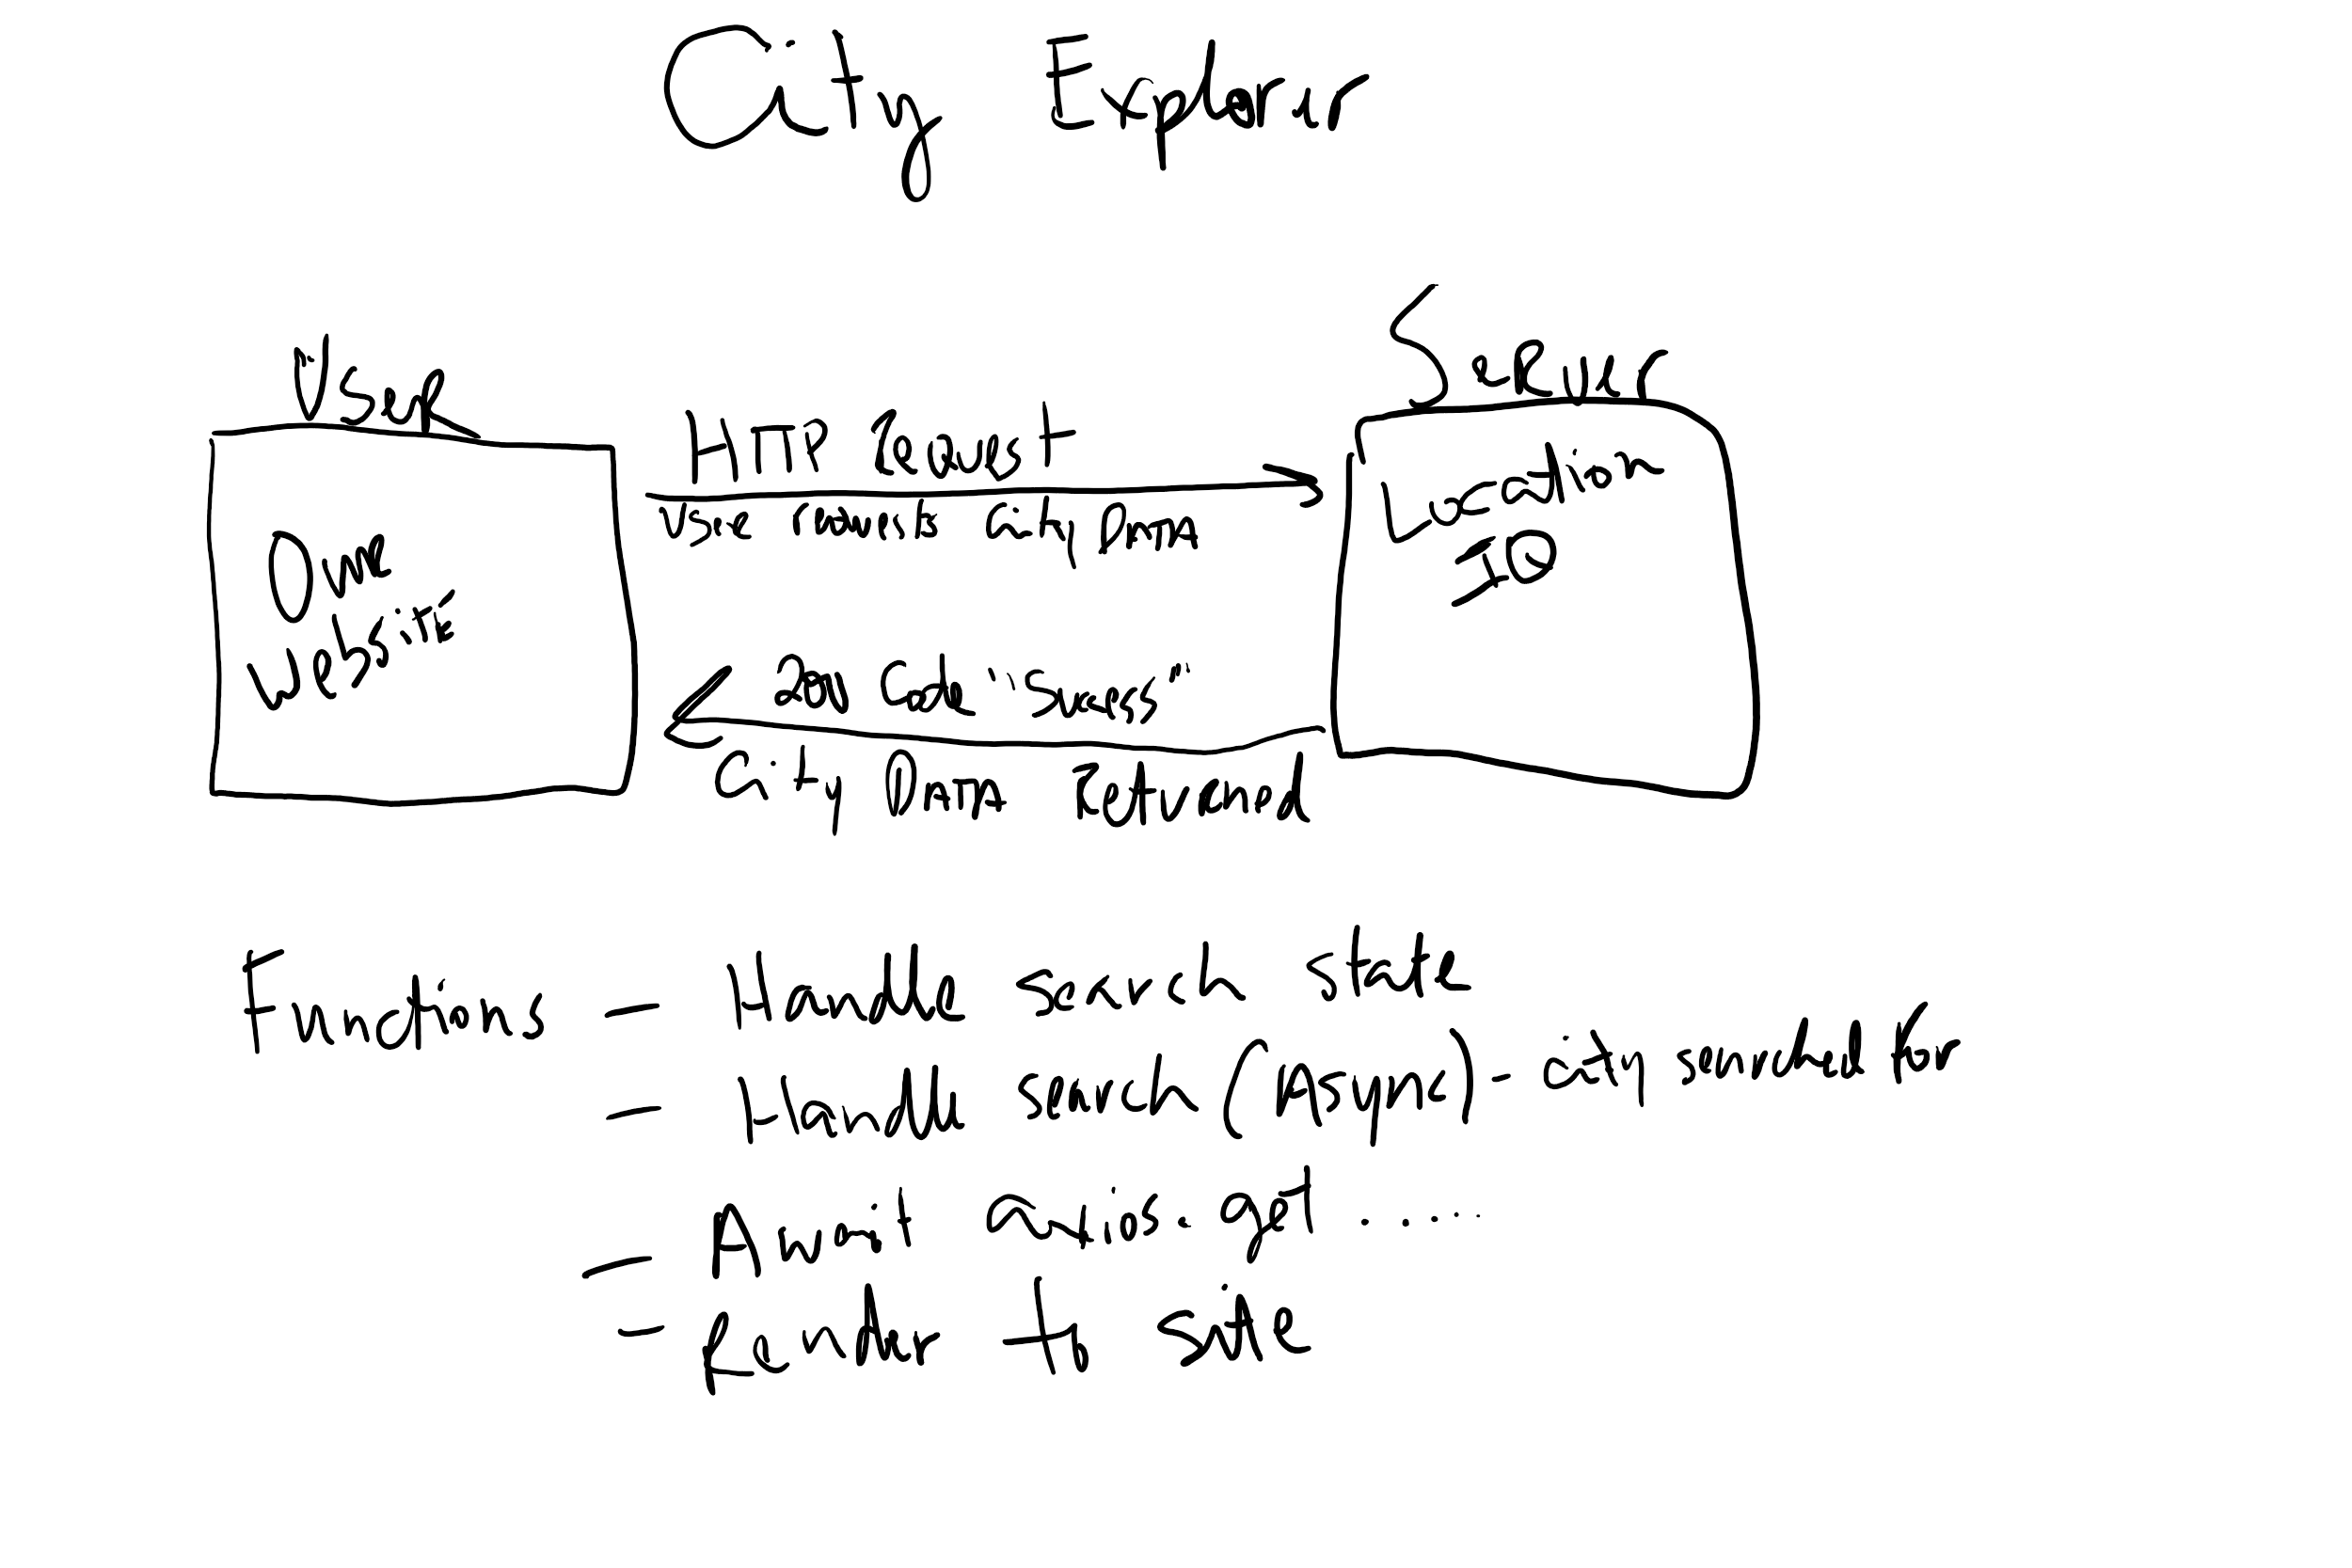 City Explorer
User
Server
HTTP Request
User Requests City Data
Our
Website
Location
IQ
200 Code "Success"
City Data Returned
Functions - Handle search state
- Handle search (Async) - city searched for
- Await axios.get .....
- Render to site